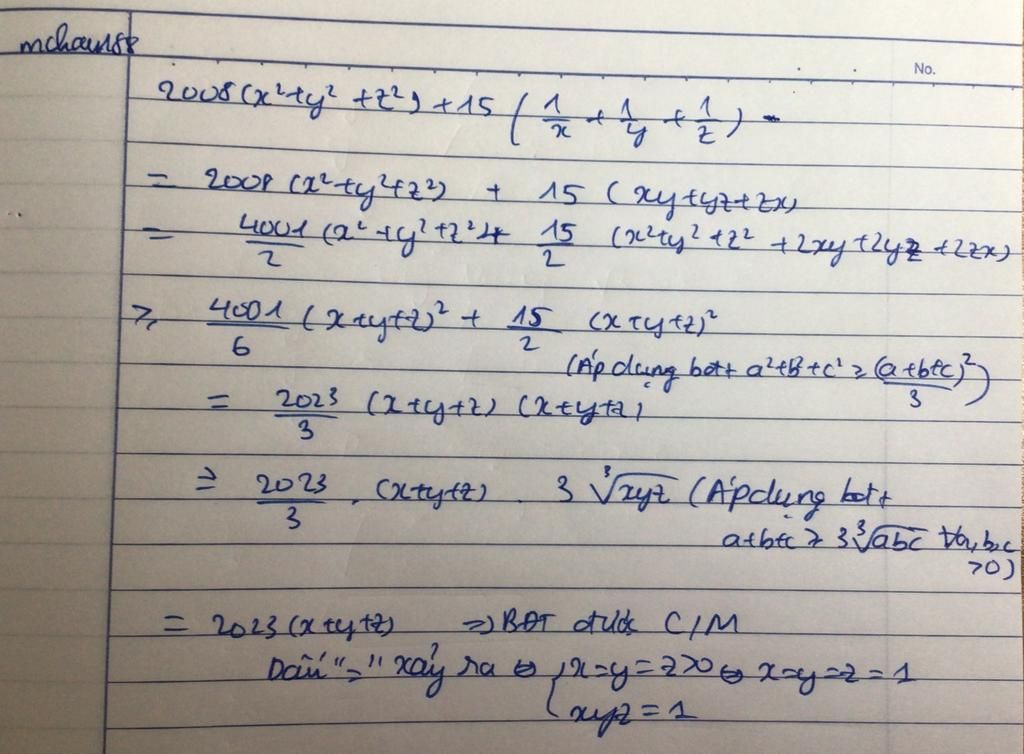 mchown88
No.
2008(x²+y²+z²)+15(1/x+1/y+1/z)-
= 2008(x²+y²+z²) + 15(xy+yz+zx)
= 4001/2 (x²+y²+z²)+ 15/2 (x²+y²+z²+2xy+2yz+2zx)
≥ 4001/6 (x+y+z)² + 15/2 (x+y+z)²
(Áp dụng bđt a²+b²+c² ≥ (a+b+c)²/3)
= 2023/3 (x+y+z)(x+y+z)
≥ 2023/3 . (x+y+z) . 3 ∛xyz (Áp dụng bđt
a+b+c ≥ 3∛abc ∀a,b,c
>0)
= 2023(x+y+z) ⇒ BĐT được C/M
Dấu "=" xảy ra ⇔ {x=y=z>0 ⇔ x=y=z=1
xyz=1